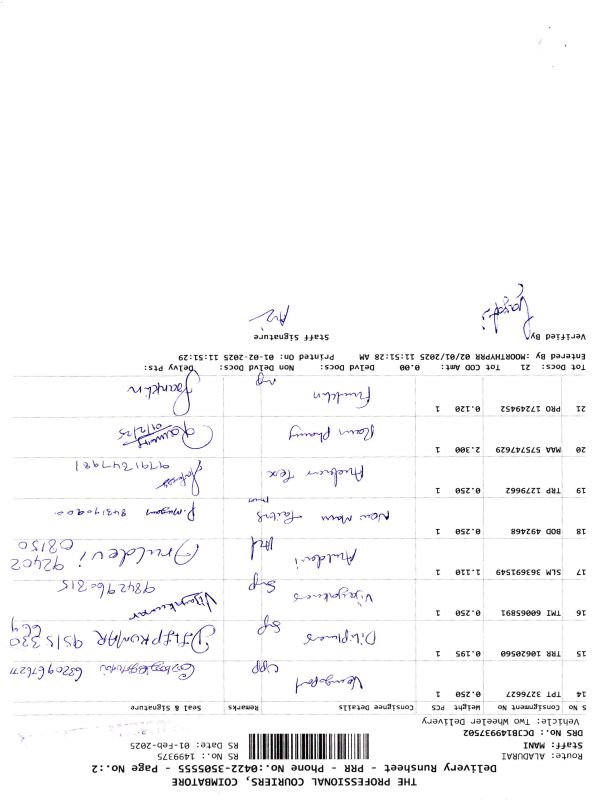 THE PROFESSIONAL COURIERS, COIMBATORE
Delivery Runsheet - PRR - Phone No.:0422-3505555 - Page No.:2
Route: ALADURAI RS No.: 1499375
Staff: MANI RS Date: 01-Feb-2025
DRS No.: DCJB149937502
Vehicle: Two Wheeler Delivery
S No Consignment No Weight PCS Consignee Details Remarks Seal & Signature
14 TPT 3276627 0.250 1 Venugopal opp 6320967627
15 TRR 10620560 0.195 1 Dilipkumar Syp DILIPKUMAR 9515 330 664
16 TMI 60065891 0.250 1 Vijayakumar Syp Vijayakumar 984296 0315
17 SLM 363691549 1.110 1 Aruldevi Aruldevi 92402 08150
18 BOD 492468 0.250 1 New Man Tailors P. Murugan
19 TRP 1279662 0.250 1 Andrew Tex 9791347981
20 MAA 575747629 2.300 1 Ram Pharmy 01/2/25
21 PRO 17249452 0.120 1 Franklin Franklin
Tot Docs: 21 Tot COD Amt: 0.00 Delvd Docs: Non Delvd Docs: Delvy Pts:
Entered By :MOORTHYPRR 02/01/2025 11:51:28 AM Printed on: 01-02-2025 11:51:29
Verified By Staff Signature